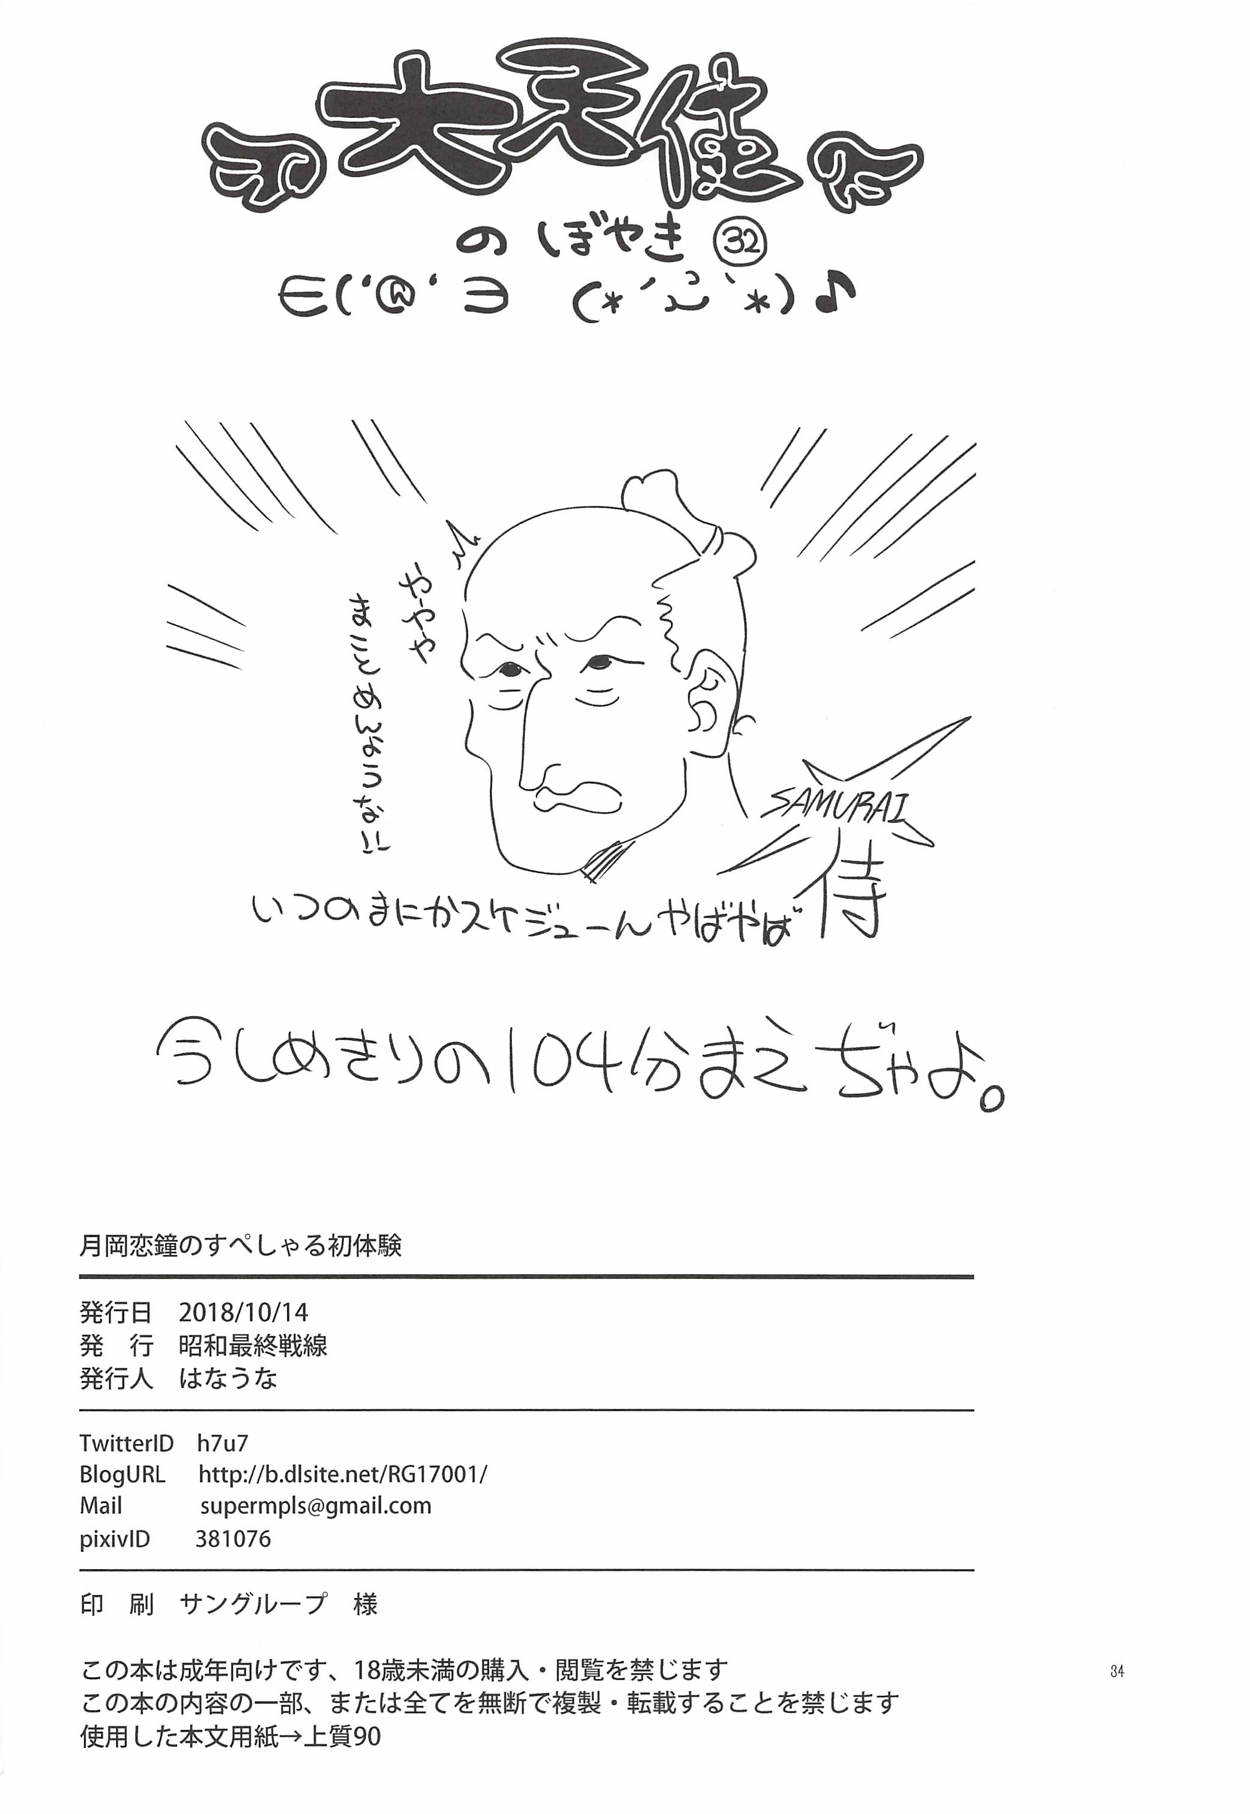 大天使
のぼやき 32
∈('@' ∋ (*´ `*)♪
かややや
いつのまにかスケジューんやばやば侍
SAMURAI
今しめきりの104分まえぢゃよ。
月岡恋鐘のすぺしゃる初体験
発行日 2018/10/14
発 行 昭和最終戦線
発行人 はなうな
TwitterID h7u7
BlogURL http://b.dlsite.net/RG17001/
Mail supermpls@gmail.com
pixivID 381076
印 刷 サングループ 様
この本は成年向けです、18歳未満の購入・閲覧を禁じます
この本の内容の一部、または全てを無断で複製・転載することを禁じます
使用した本文用紙→上質90
34